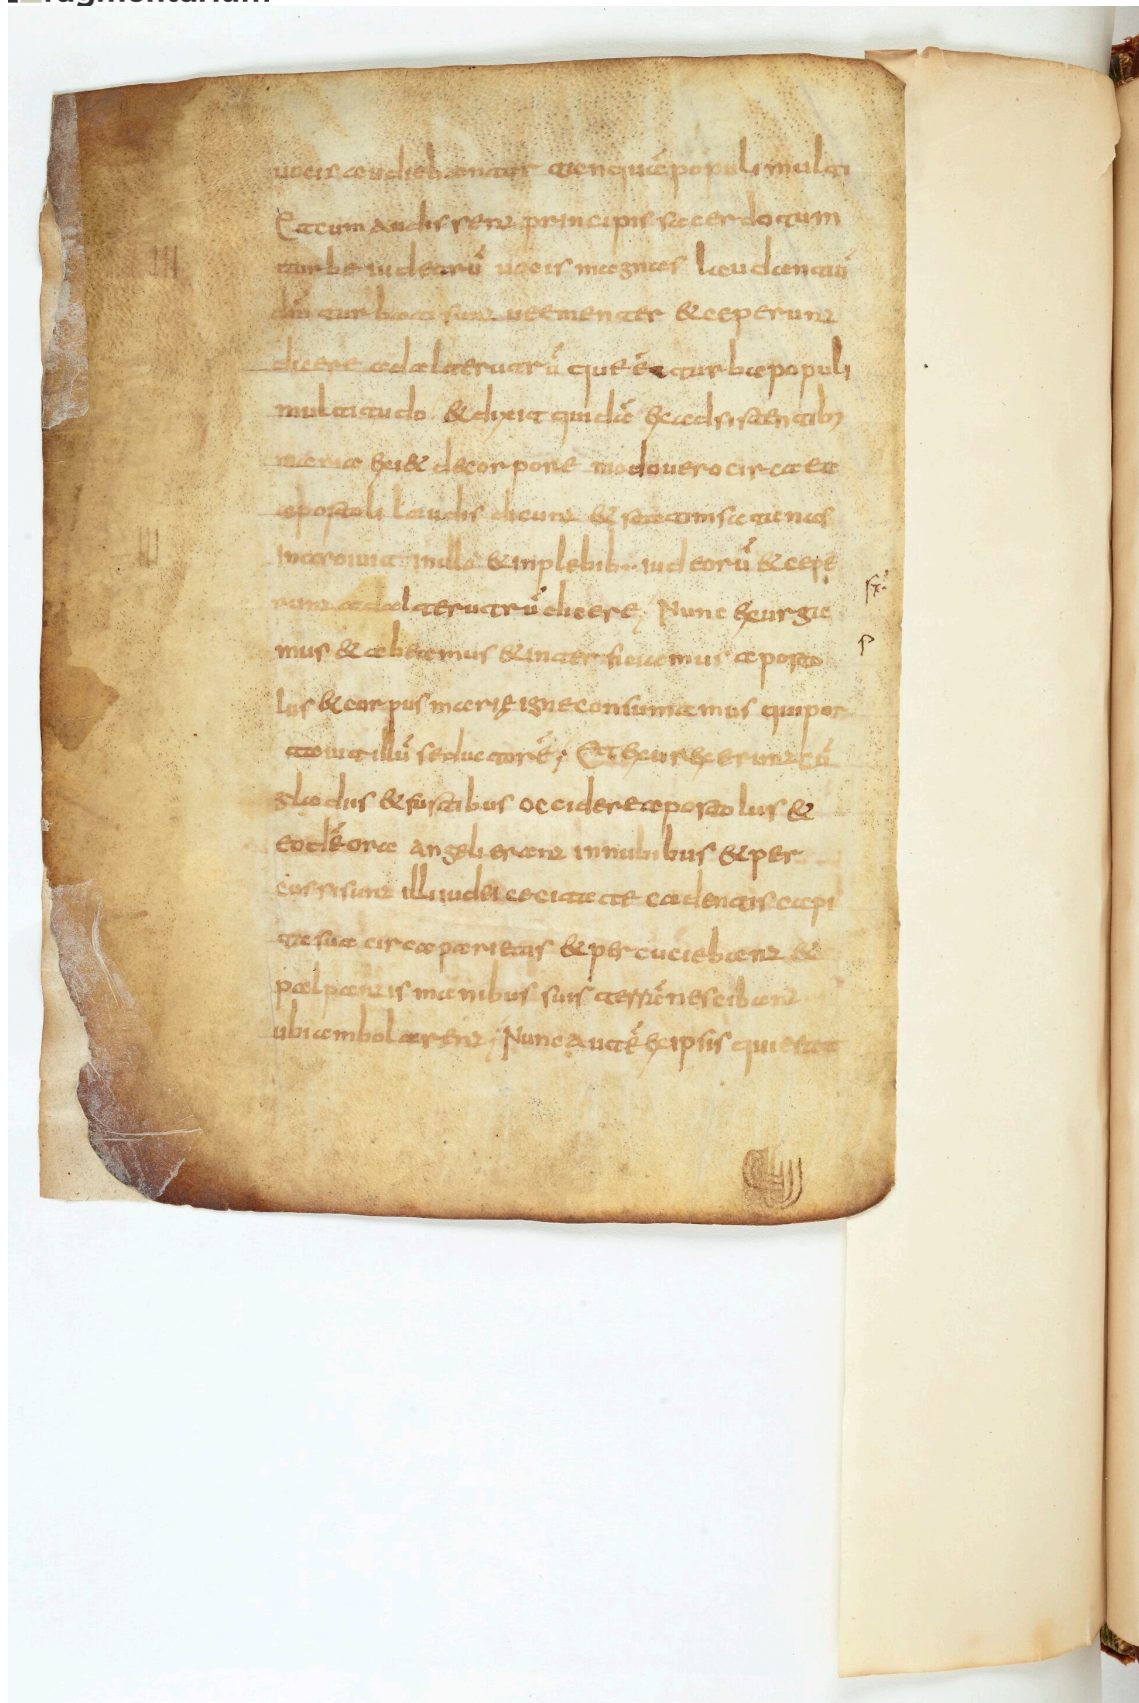 fragmentarium
uocis audiebantur tanquã populi multi
Et cum audissent principis sacerdotum
turbe iudeorũ uocis magnas laudantiũ
dñi turbati sunt uehementer & ceperunt
dicere ad alterutrũ que ẽ turba populi
multitudo & dixit quidã ex adsistentib;
maria exi& de corpore modo uero circa ea
apostoli laudis dicunt & statim satanas
introiuit in illa & in plebib; iudeorũ & cepe
runt ad alterutrũ dicere; Nunc exurga
mus & abeamus & interficiamus aposto
lus & corpus marię igne consumamus qui por
tauit illũ seductorẽ; Et exurexerunt cũ
gladiis & fustibus occidere apostolus &
eodẽ ora angeli erant in nubibus & per
cussi sunt illi iudei cecitate cadentis capi
ta sua circa parietis & percuciebant &
palpantis manibus suis terrã nescibant
ubi ambolarent; Nunc autẽ ex ipsis qui erat